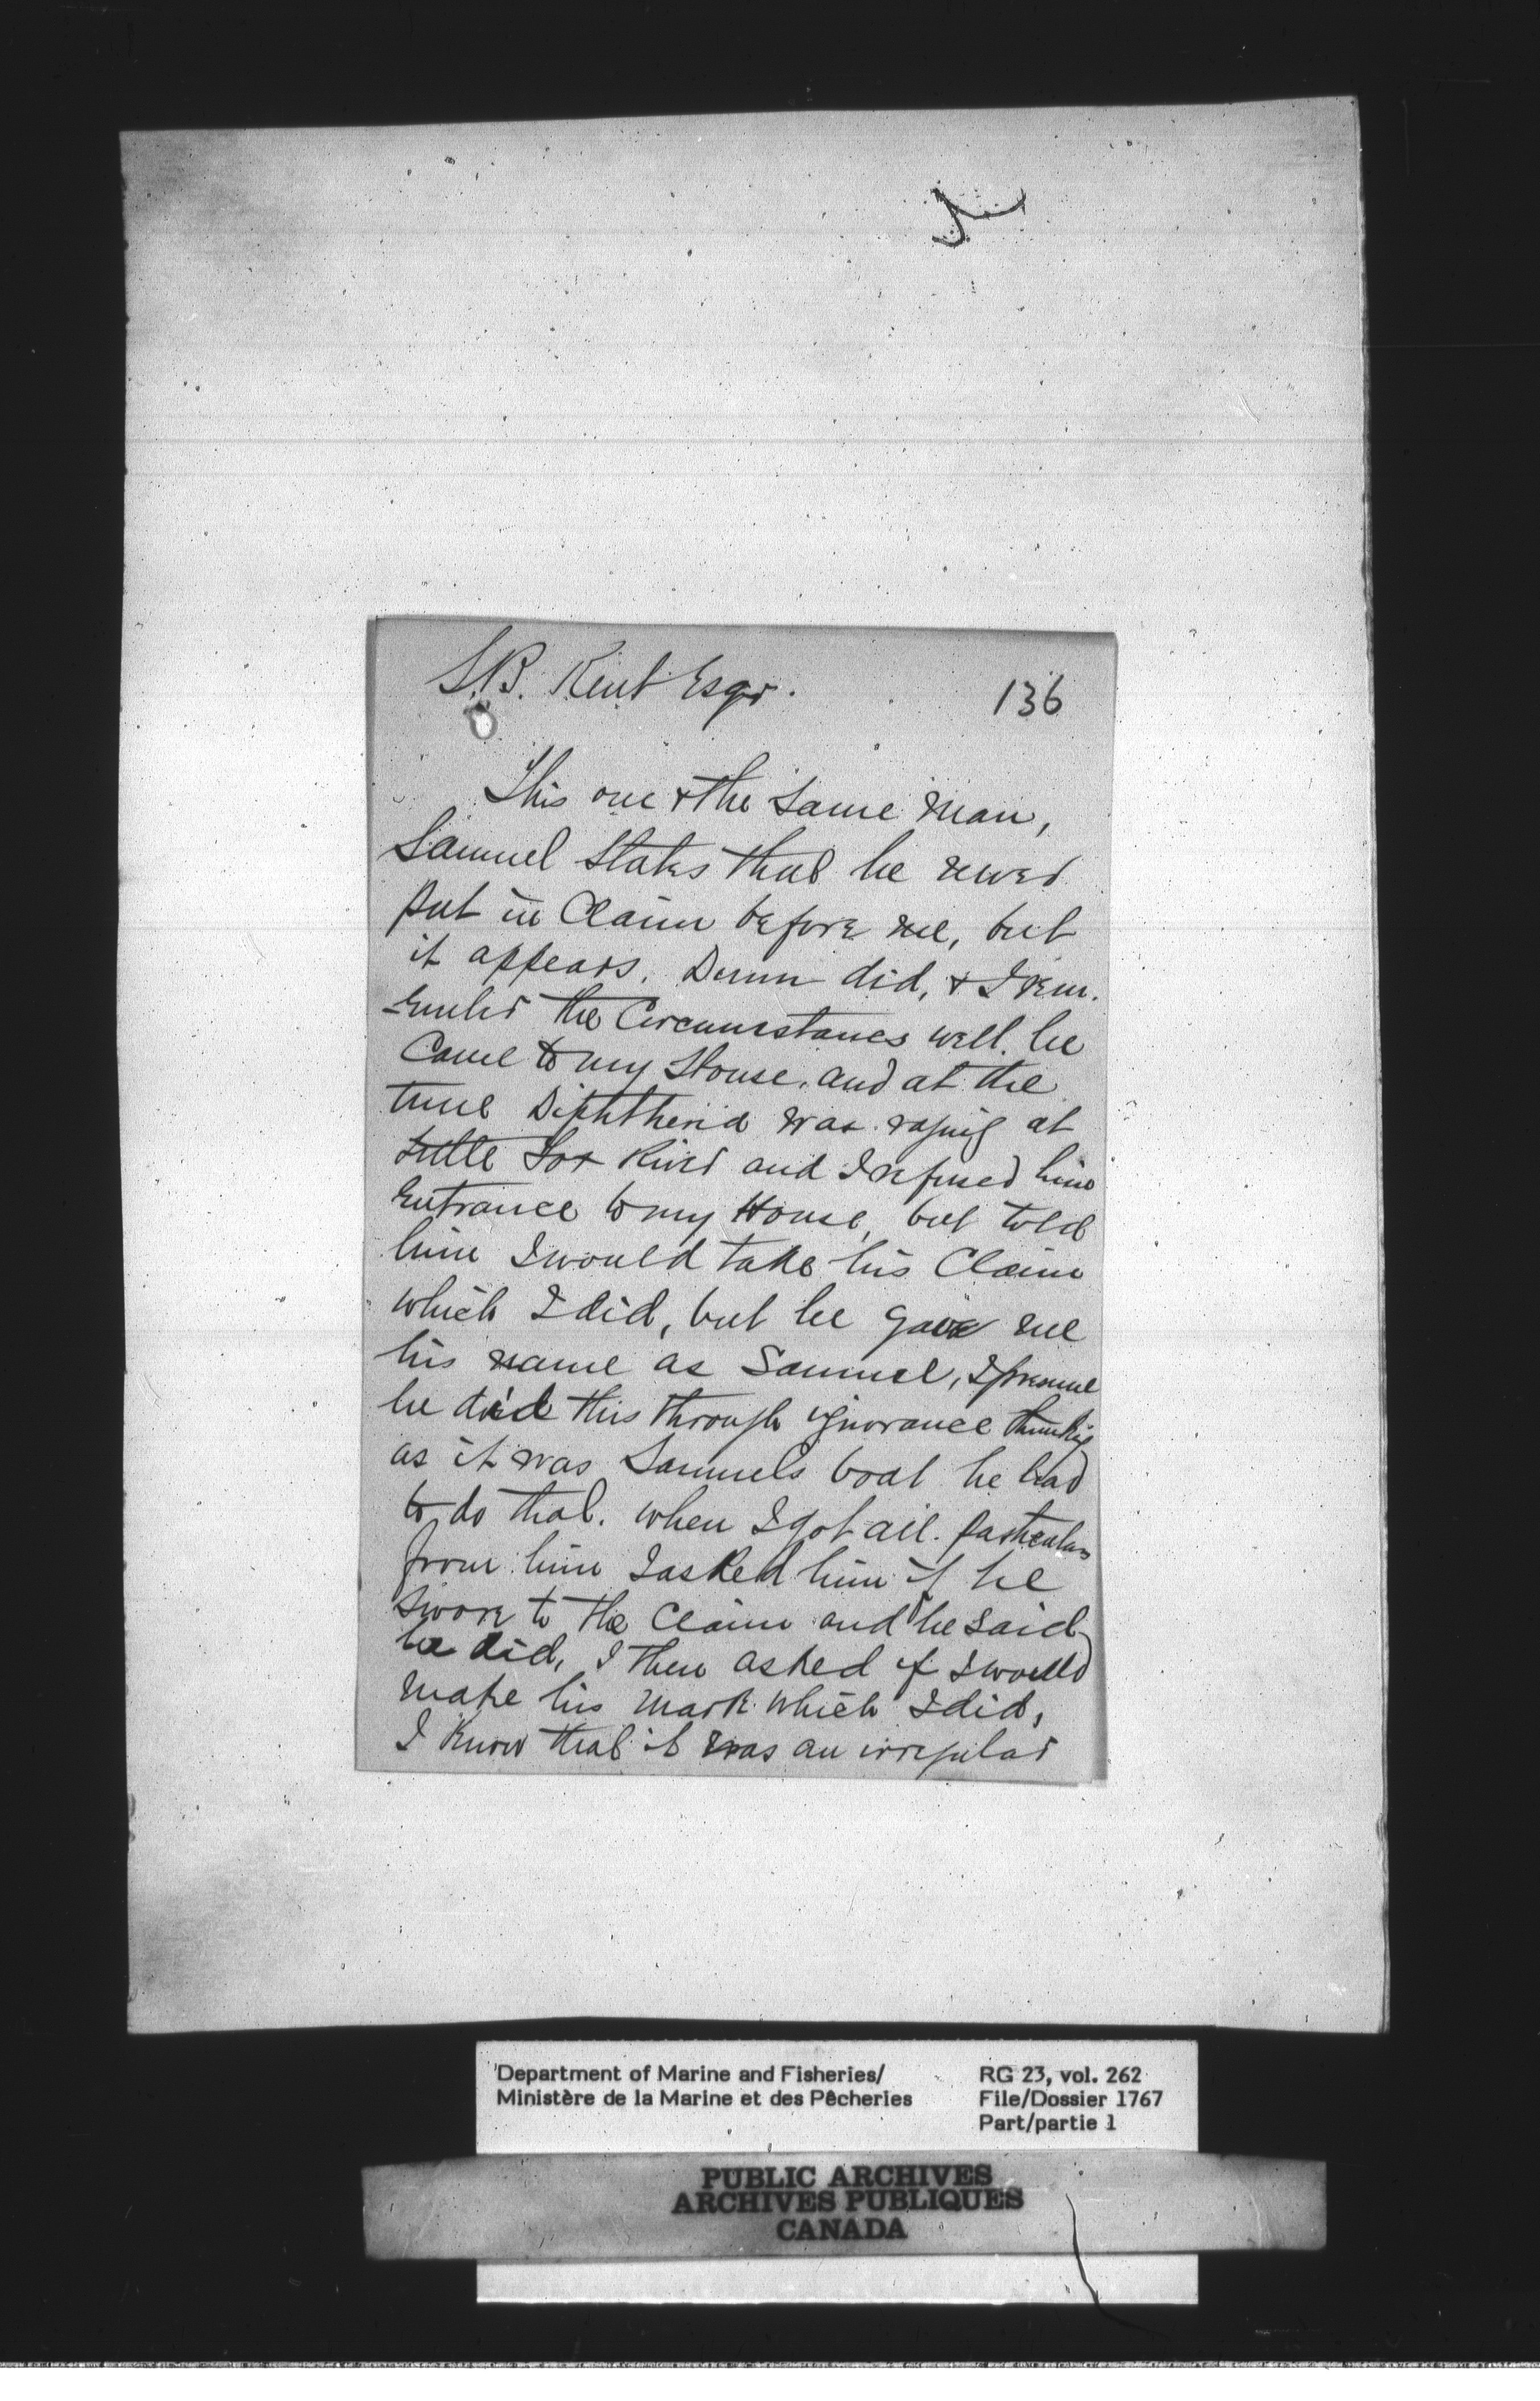 S.B. Kent Esqr.
136
This one & the Same Man,
Samuel States that he never
put in Claim before me, but
it appears. Dunn did, & I rem.
-ember the Circumstances well. he
Came to my House. and at the
time Diphtheria was raging at
Little Fox River and I refused him
Entrance to my House, but told
him I would take his Claim
which I did, but he gave me
his name as Samuel, I presume
he did this through ignorance thinking
as it was Samuels boat he had
to do that. when I got all. particulars
from him I asked him if he
Swore to the Claim and he said
he did, I then asked if I would
make his mark which I did,
I know that it was an irregular
Department of Marine and Fisheries/
Ministère de la Marine et des Pêcheries
RG 23, vol. 262
File/Dossier 1767
Part/partie 1
PUBLIC ARCHIVES
ARCHIVES PUBLIQUES
CANADA